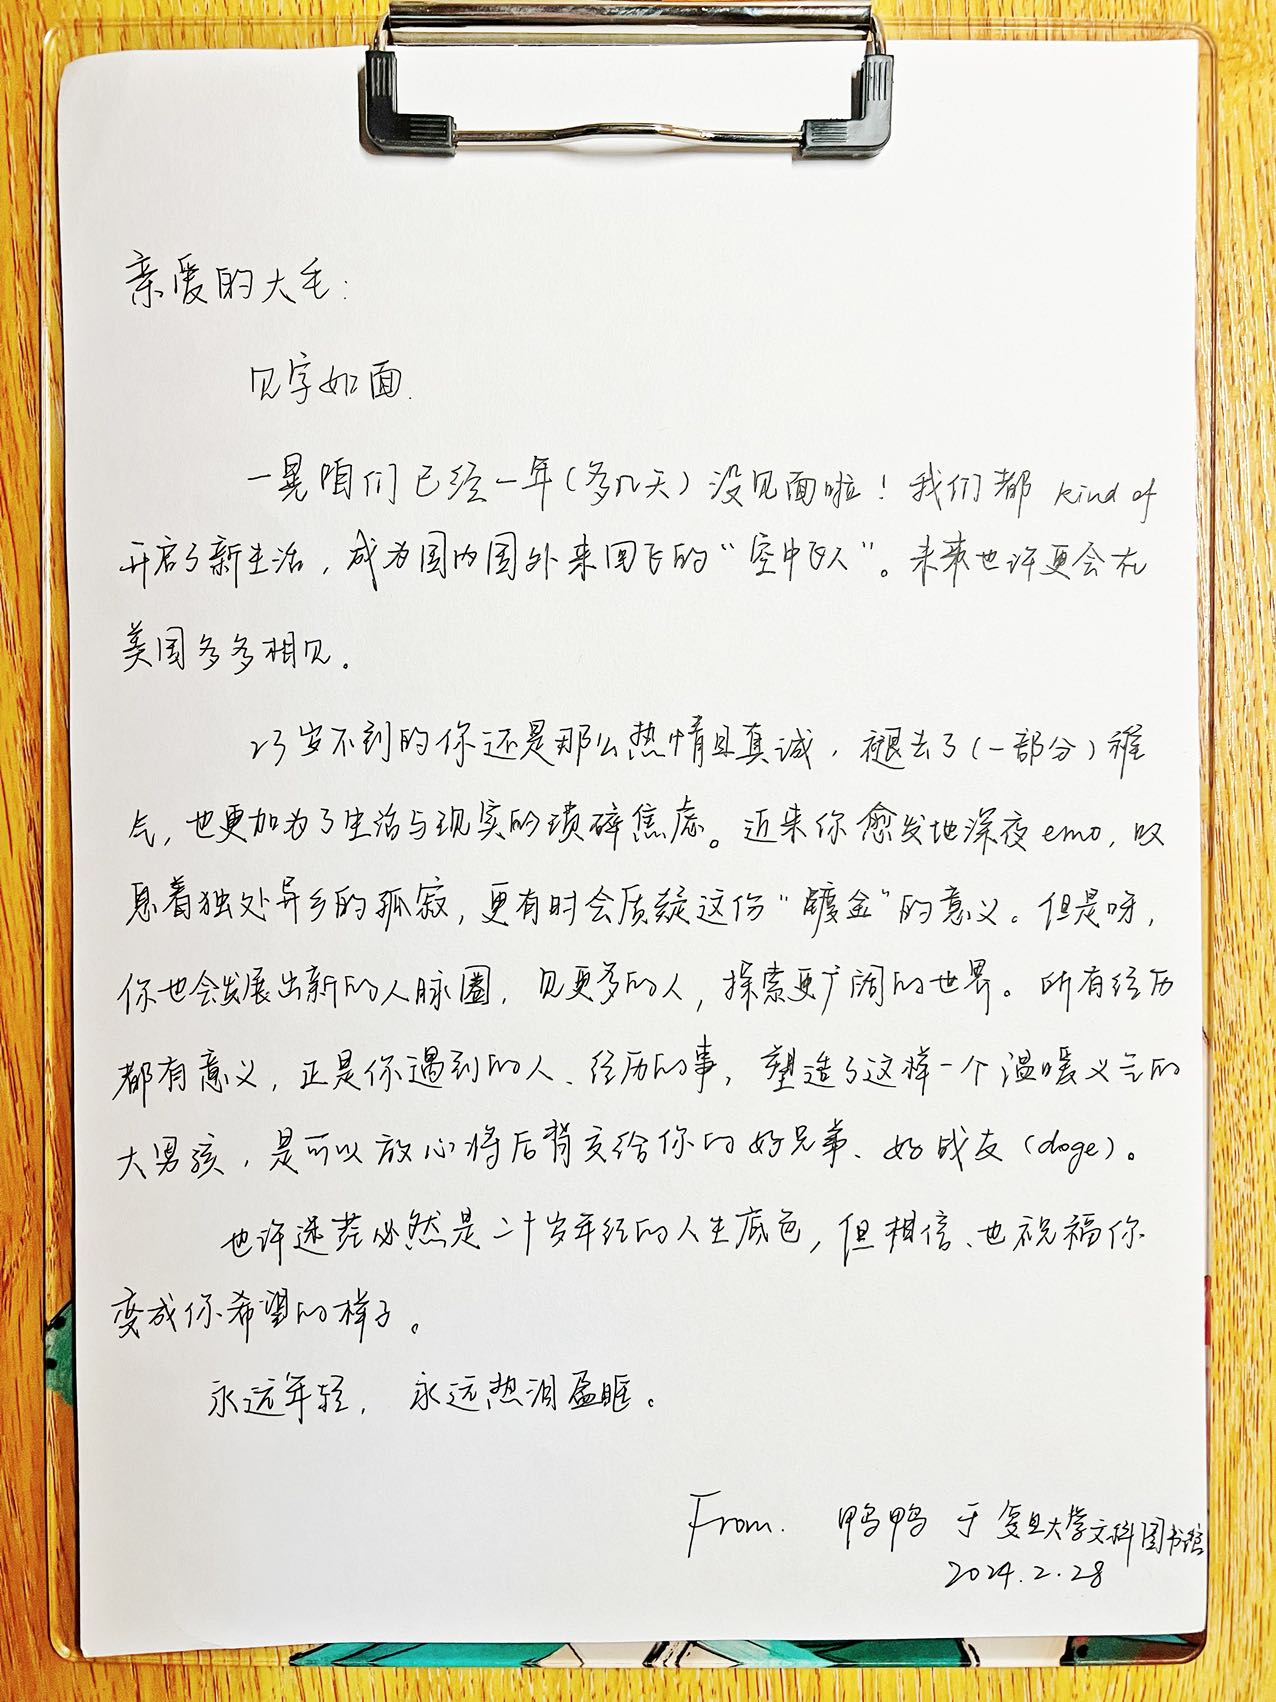 亲爱的大毛：
见字如面.
一晃咱们已经一年（多几天）没见面啦！我们都 kind of
开启了新生活，成为国内国外来回飞的“空中飞人”。未来也许更会在
美国多多相见。
23岁不到的你还是那么热情且真诚，褪去了（一部分）稚
气，也更加为了生活与现实的琐碎焦虑。近来你愈发地深夜emo，叹
息着独处异乡的孤寂，更有时会质疑这份“镀金”的意义。但是呀，
你也会发展出新的人脉圈，见更多的人，探索更广阔的世界。所有经历
都有意义，正是你遇到的人、经历的事，塑造了这样一个温暖义气的
大男孩，是可以放心将后背交给你的好兄弟、好战友（doge）。
也许迷茫必然是二十岁年轻的人生底色，但相信、也祝福你
变成你希望的样子。
永远年轻，永远热泪盈眶。
From. 鸭鸭 于 复旦大学文科图书馆
2024.2.28